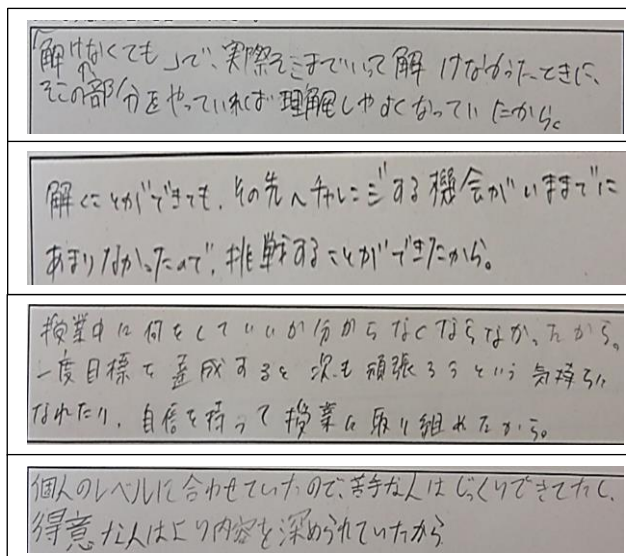 「解けなくても」で、実際そこまでいって解けなかったときに、
そこの部分をやっていれば理解しやすくなっていたから。
解くことができても、その先へチャレンジする機会がいままでに
あまりなかったので、挑戦することができたから。
授業中に何をしていいか分からなくならなかったから。
一度目標を達成すると次も頑張ろうという気持ちに
なれたり、自信を持って授業に取り組めたから。
個人のレベルに合わせていたので、苦手な人はじっくりできてたし、
得意な人はより内容を深められていたから